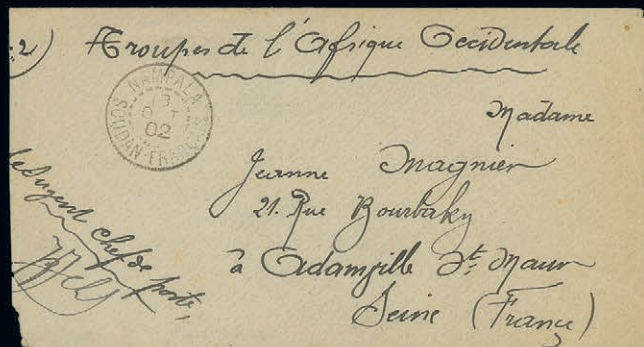 2)
Troupes de l'Afrique Occidentale
NAMPALA
13
OCT
02
SOUDAN-FRANÇAIS
Madame
Jeanne Magnier
21. Rue Bourbaky
à Adamville St. Maur
Seine (France)
le Sergent chef de poste,